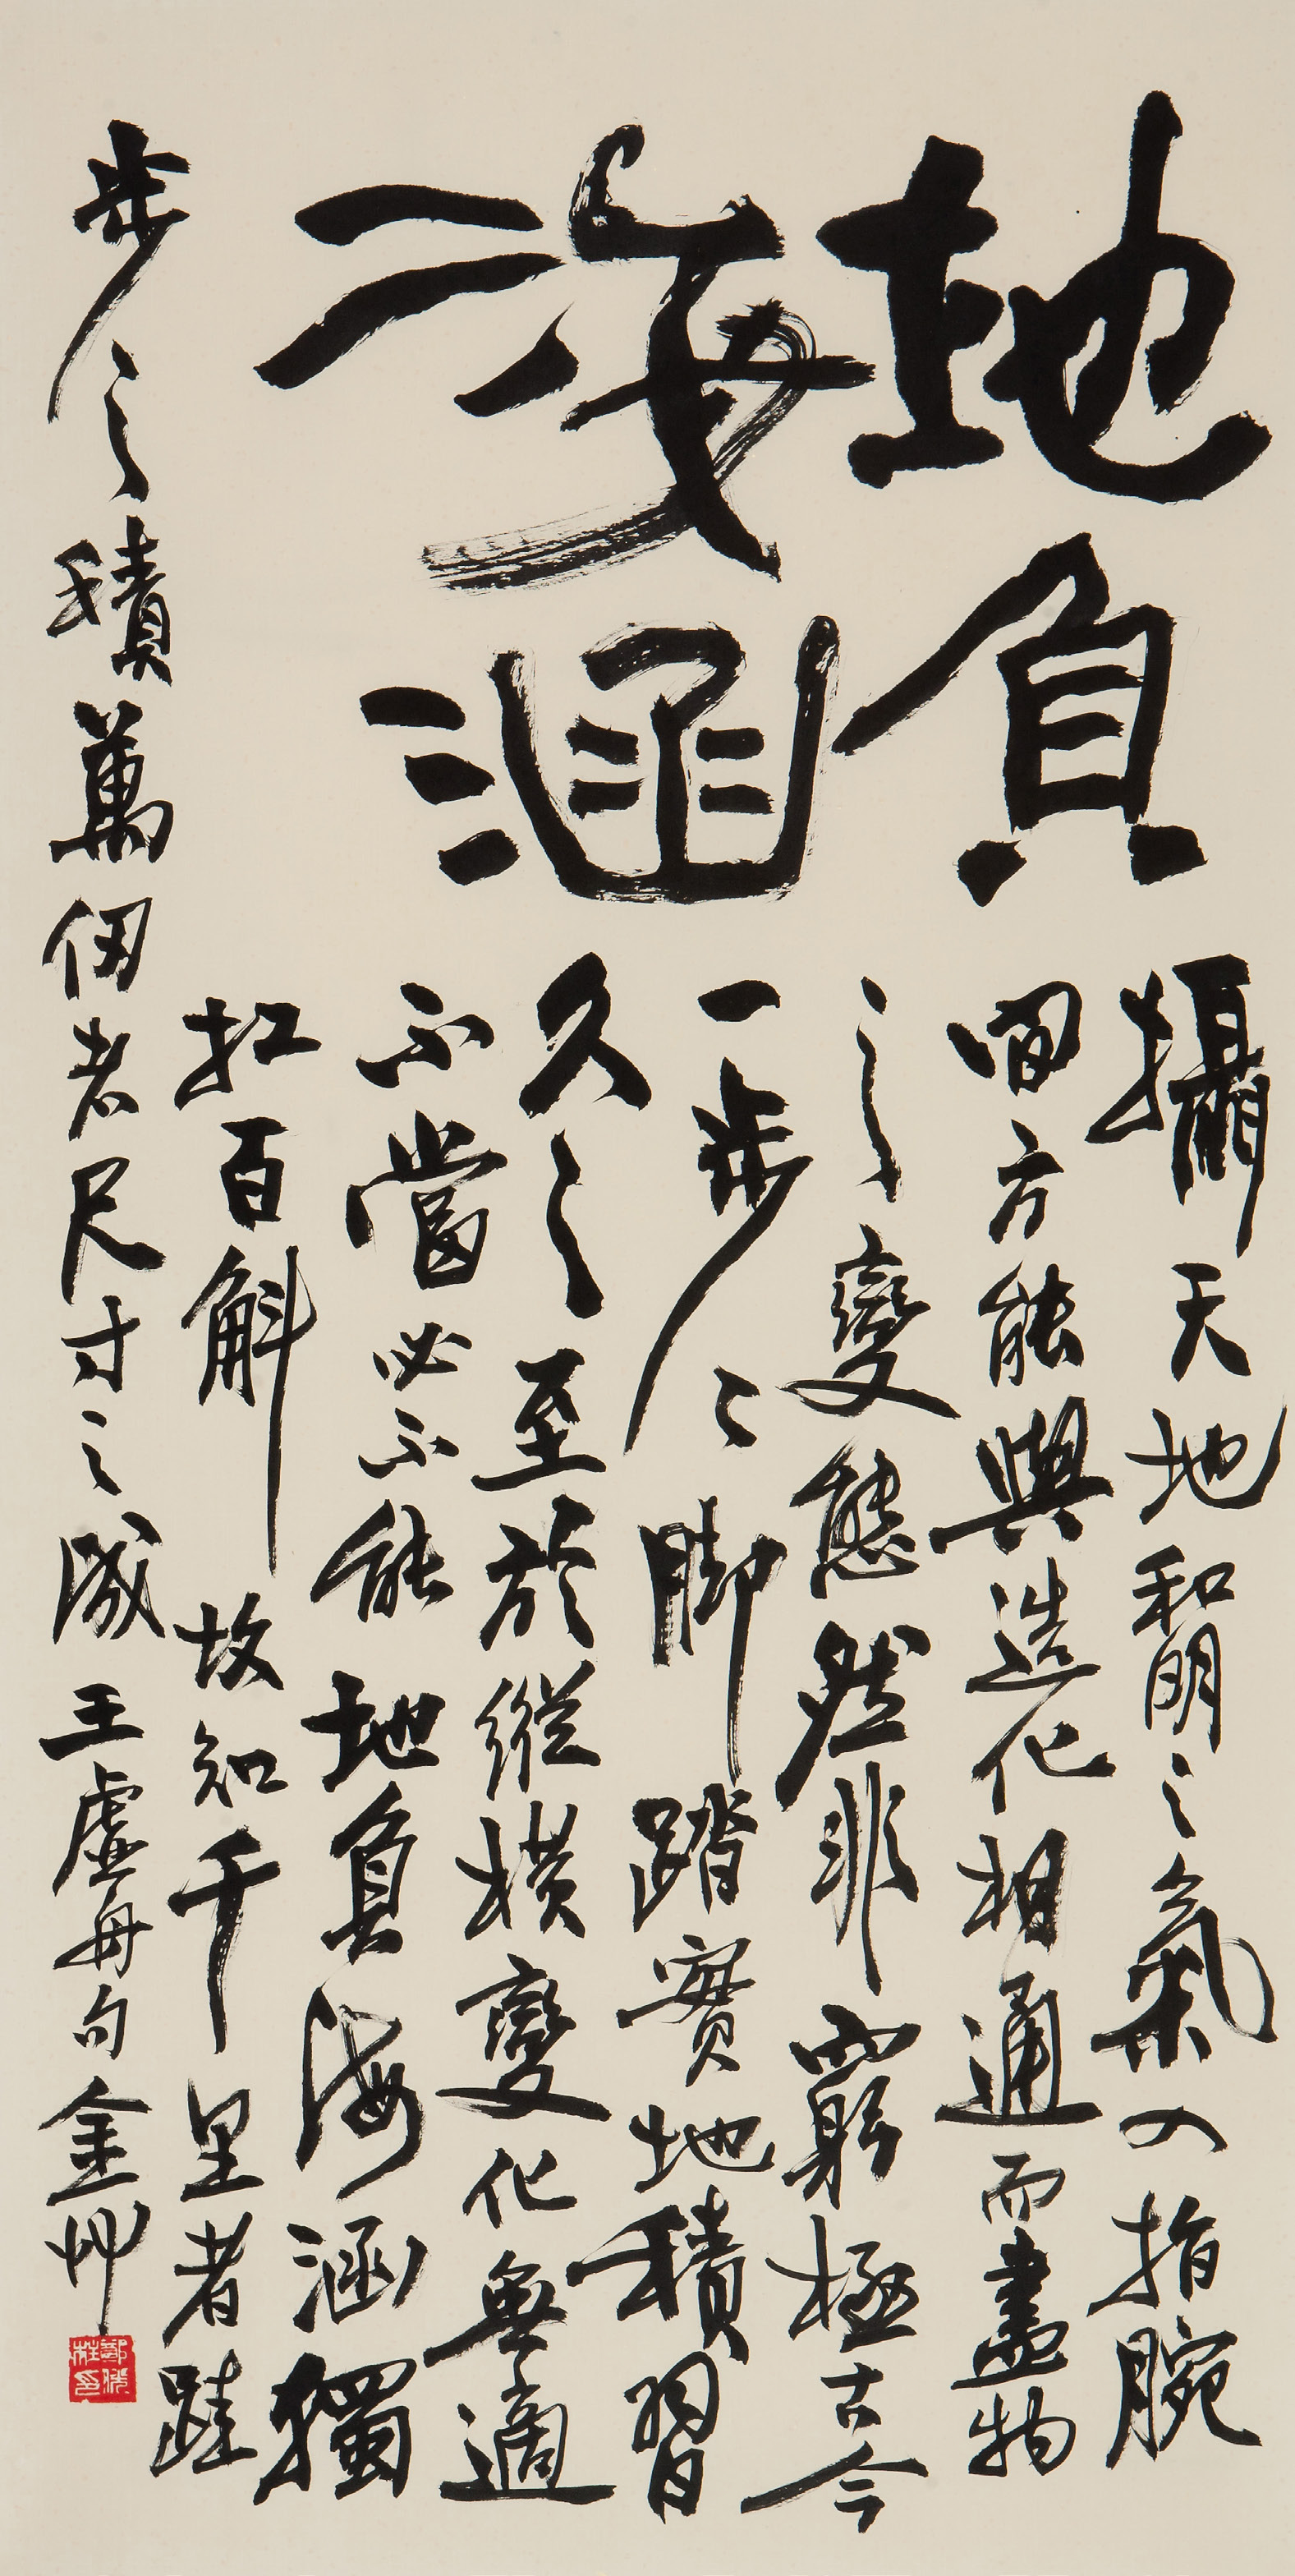 地負
海涵
攝天地和朙之氣入指腕
間方能與造化相通而盡物
之變態然非窮極古今
一步々脚踏實地積習
久之至於縱橫變化無適
不當必不能地負海涵獨
扛百斛故知千里者跬
步之積萬仞者尺寸之成王虛舟句金艸